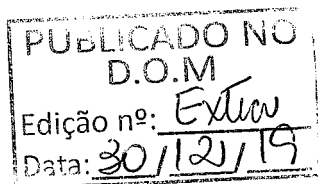 PUBLICADO NO
D.O.M
Edição nº: Extra
Data: 30/12/19